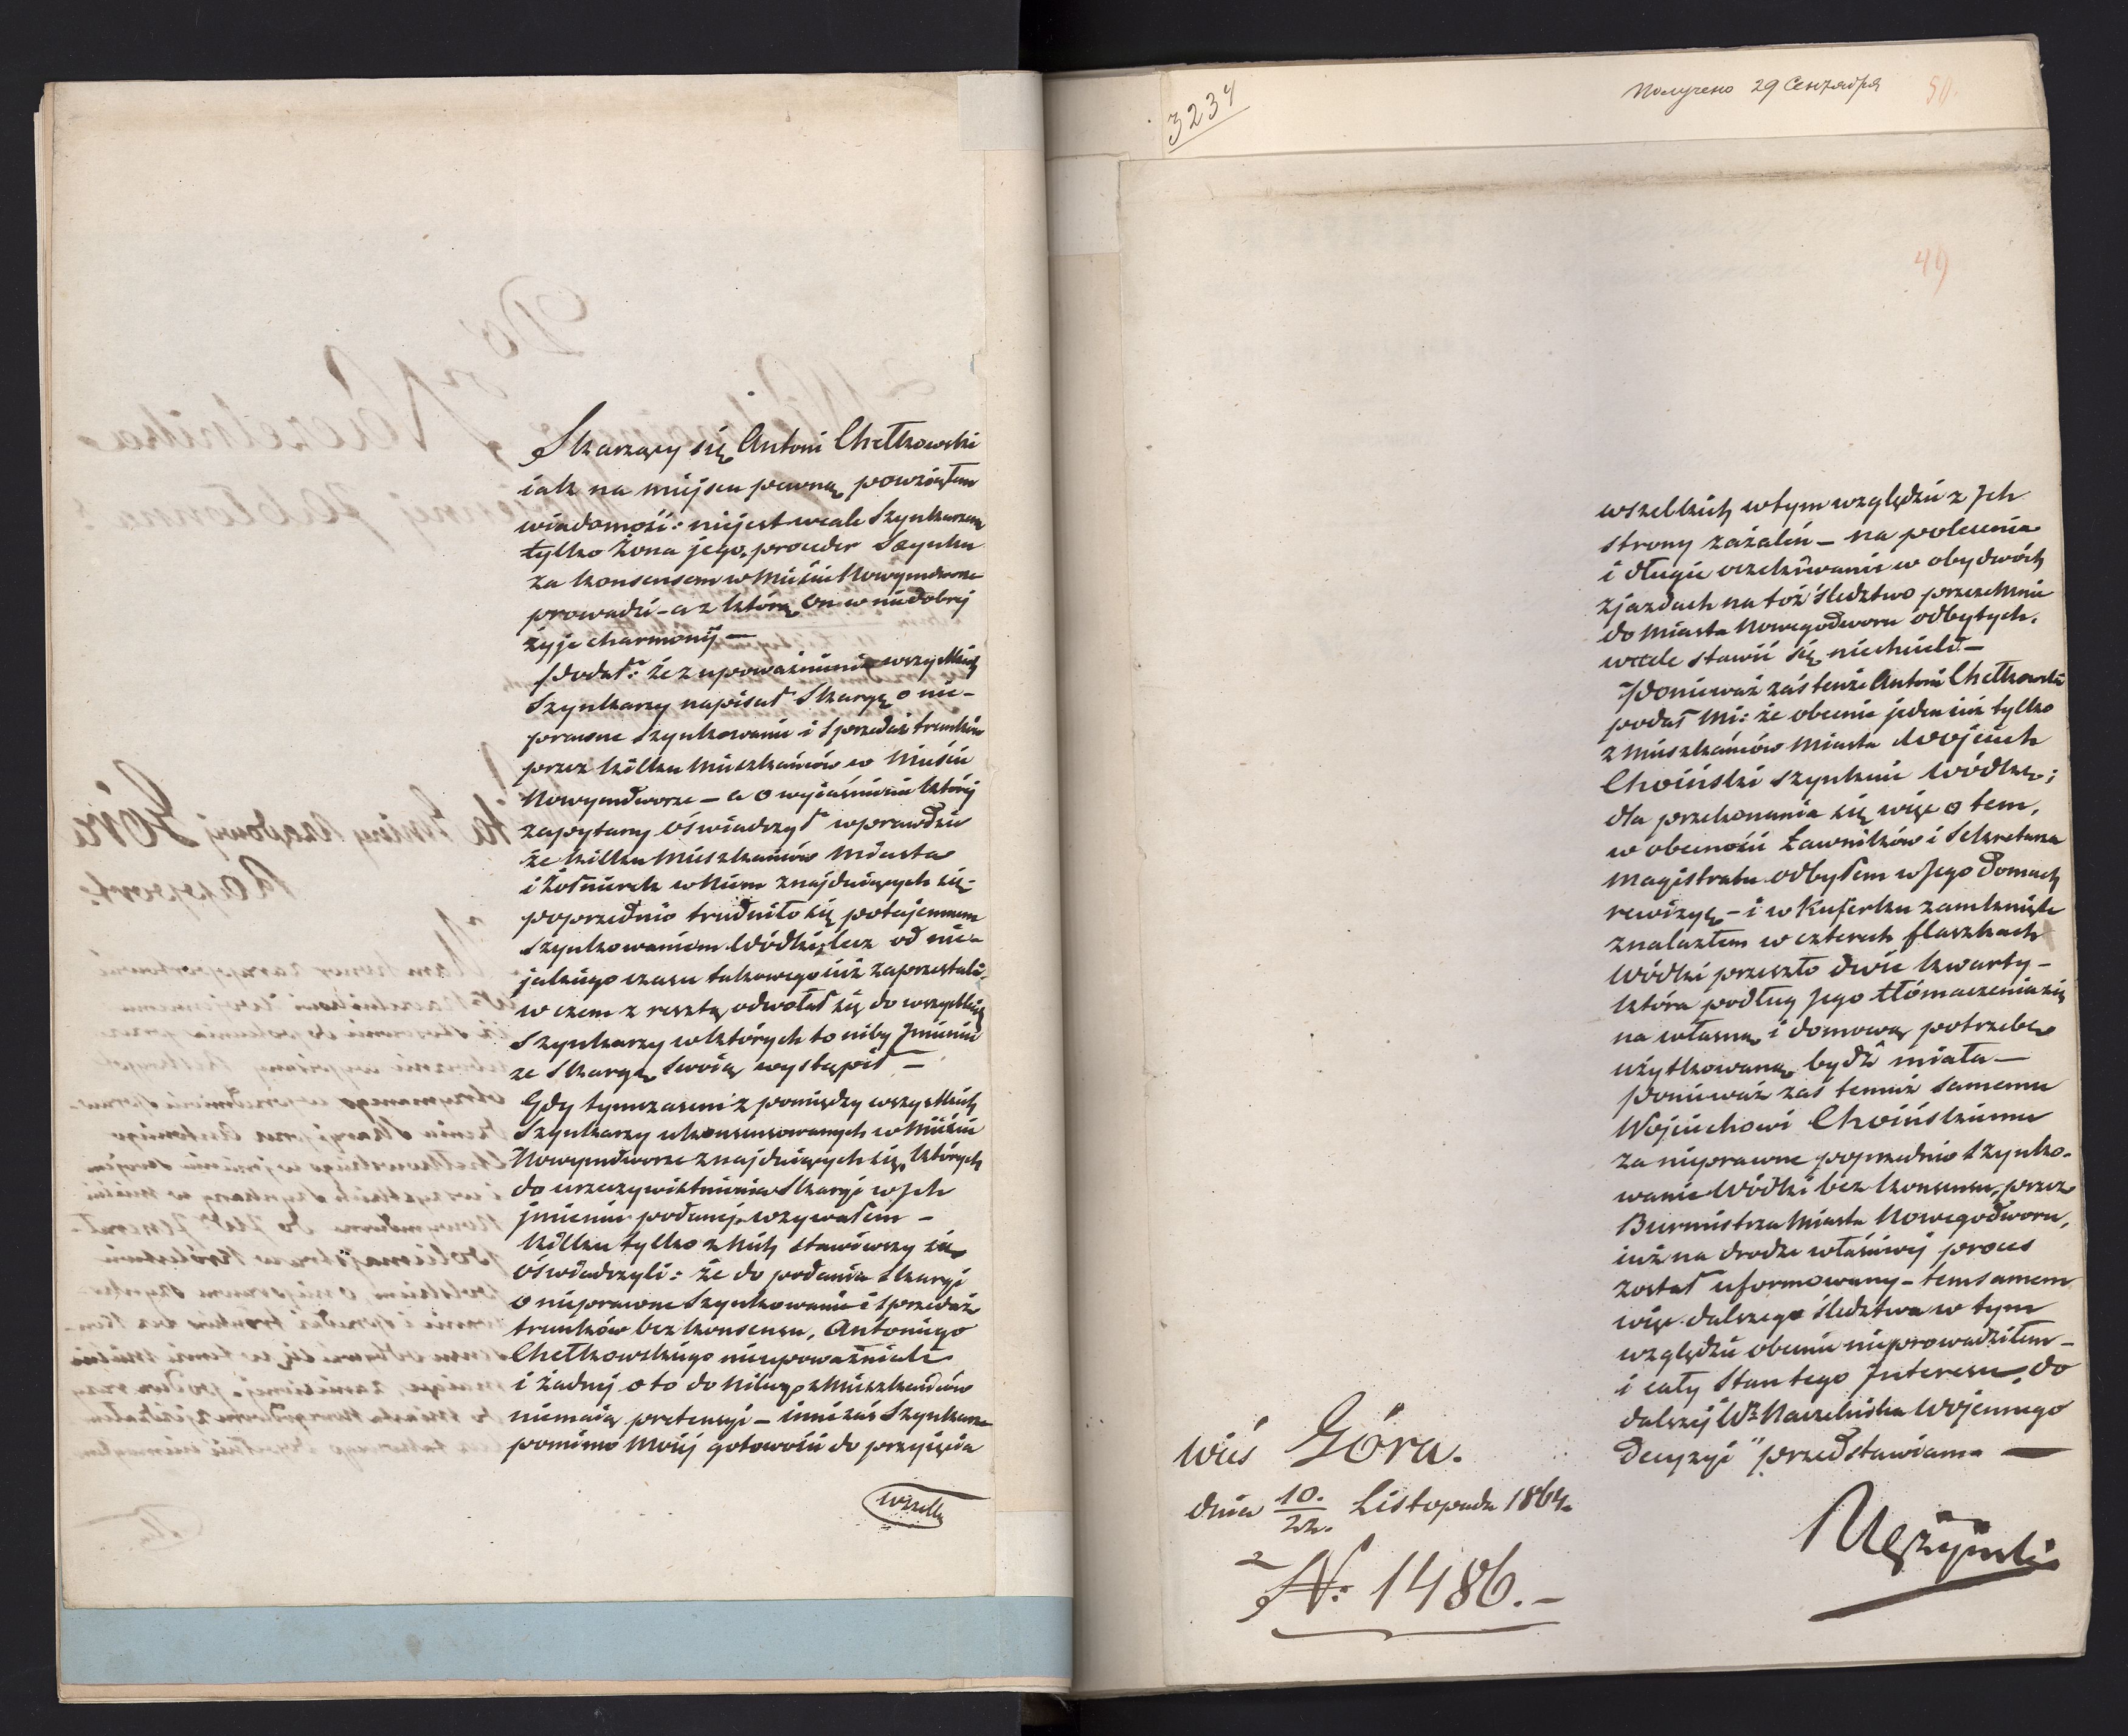 Skarzący się Antoni Chełkowski
iak na miejscu pewną powziąłem
wiadomość: niejest wcale Szynkarzem
tylko Żona jego, proceder Szynku
za konsensem w Mieście Nowymdworze
prowadzi – a z którą On w niedobrej
żyje charmonij —
Podał: że z upoważnienia wszystkich
Szynkarzy napisał Skargę o nie-
prawne Szynkowanie i Sprzedaż trunków
przez kilku Mieszkańców w Mieście
Nowymdworze – a o wyjaśnienie której
zapytany Oświadczył wprawdzie
że kilku Mieszkańców Miasta
i Żołnierzy w Niem znajduiących się –
poprzednio trudniło się potajemnem
Szynkowaniem Wódki, lecz od nie-
jakiego czasu takowego iuż zaprzestali,
w czem z resztą odwołał się do wszystkich
Szynkarzy w których to niby Jmieniu
ze Skargą Swoią wystąpił —
Gdy tymczasem z pomiędzy wszystkich
Szynkarzy ukonsensowanych w Mieście
Nowymdworze znajduiących się, których
do urzeczywistnienia Skargi w Jch
jmieniu podanej, wzywałem –
kilku tylko z Nich stawiwszy się
Oświadczyli: że do podania Skargi
o nieprawne Szynkowanie i sprzedaż
trunków bez konsensu, Antoniego
Chełkowskiego nieupoważniali
i żadnej o to do Nikogo z Mieszkańców
niemaią pretensyi – inni zaś Szynkarze
pomimo Moiej gotowości do przyięcia
wszelkich
3234
Получено 29 Сентября
50.
49
wszelkich w tym względzie z Jch
strony zażaleń – na polecenia
i długie oczekiwanie w obydwóch
zjazdach na toż śledztwo przezemnie
do Miasta Nowegodworu odbytych,
wcale stawić się niechcieli –
Ponieważ zaś tenże Antoni Chełkowski
podał Mi: że obecnie jeden iuż tylko
z Mieszkańców Miasta Woyciech
Choiński szynkuie Wódkę;
dla przekonania się więc o tem,
w obecności Ławników i Sekretarza
Magistratu odbyłem w Jego Domach
rewizyę – i w Kuferku zamkniętem
znalazłem w czterech flaszkach
Wódki przeszło dwie kwarty –
która podług Jego tłómaczenia się
na własną i domową potrzebę
użytkowaną bydź miała —
Ponieważ zaś temuż Samemu
Wojciechowi Choińskiemu
za nieprawne poprzednio szynko-
wanie Wódki bez konsensu, przez
Burmistrza Miasta Nowegodworu,
iuż na drodze właściwej proces
został uformowany – temsamem
więc dalszego śledztwa w tym
względzie obecnie nieprowadziłem –
i cały Stan tego Jnteresu, do
dalszej Wo Naczelnika Wojennego
Decyzyi przedstawiam —
wieś Góra.
dnia 10./22. Listopada 1864.
No: 1486. –